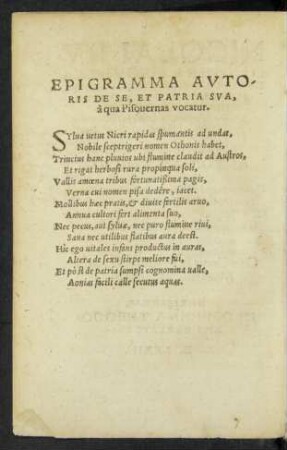 EPIGRAMMA AVTO-
RIS DE SE, ET PATRIA SVA,
à qua Pisquernas vocatur.
SYlua vetus Nicri rapidas spumantis ad undas,
Nobile sceptrigeri nomen Othonis habet,
Trincius hanc pluuios ubi flumine claudit ad Austros,
Et rigat herbosi rura propinqua soli,
Vallis amœna tribus fortunatißima pagis,
Verna cui nomen pisa dedêre, iacet.
Mollibus hæc pratis, & diuite fertilis aruo,
Annua cultori fert alimenta suo,
Nec pecus, aut syluæ, nec puro flumine riui,
Sana nec utilibus flatibus aura deest.
Hic ego uitales infans productus in auras,
Altera de sexu stirpe meliore fui,
Et pòst de patria sumpsi cognomina ualle,
Aonias facili calle secutus aquas.